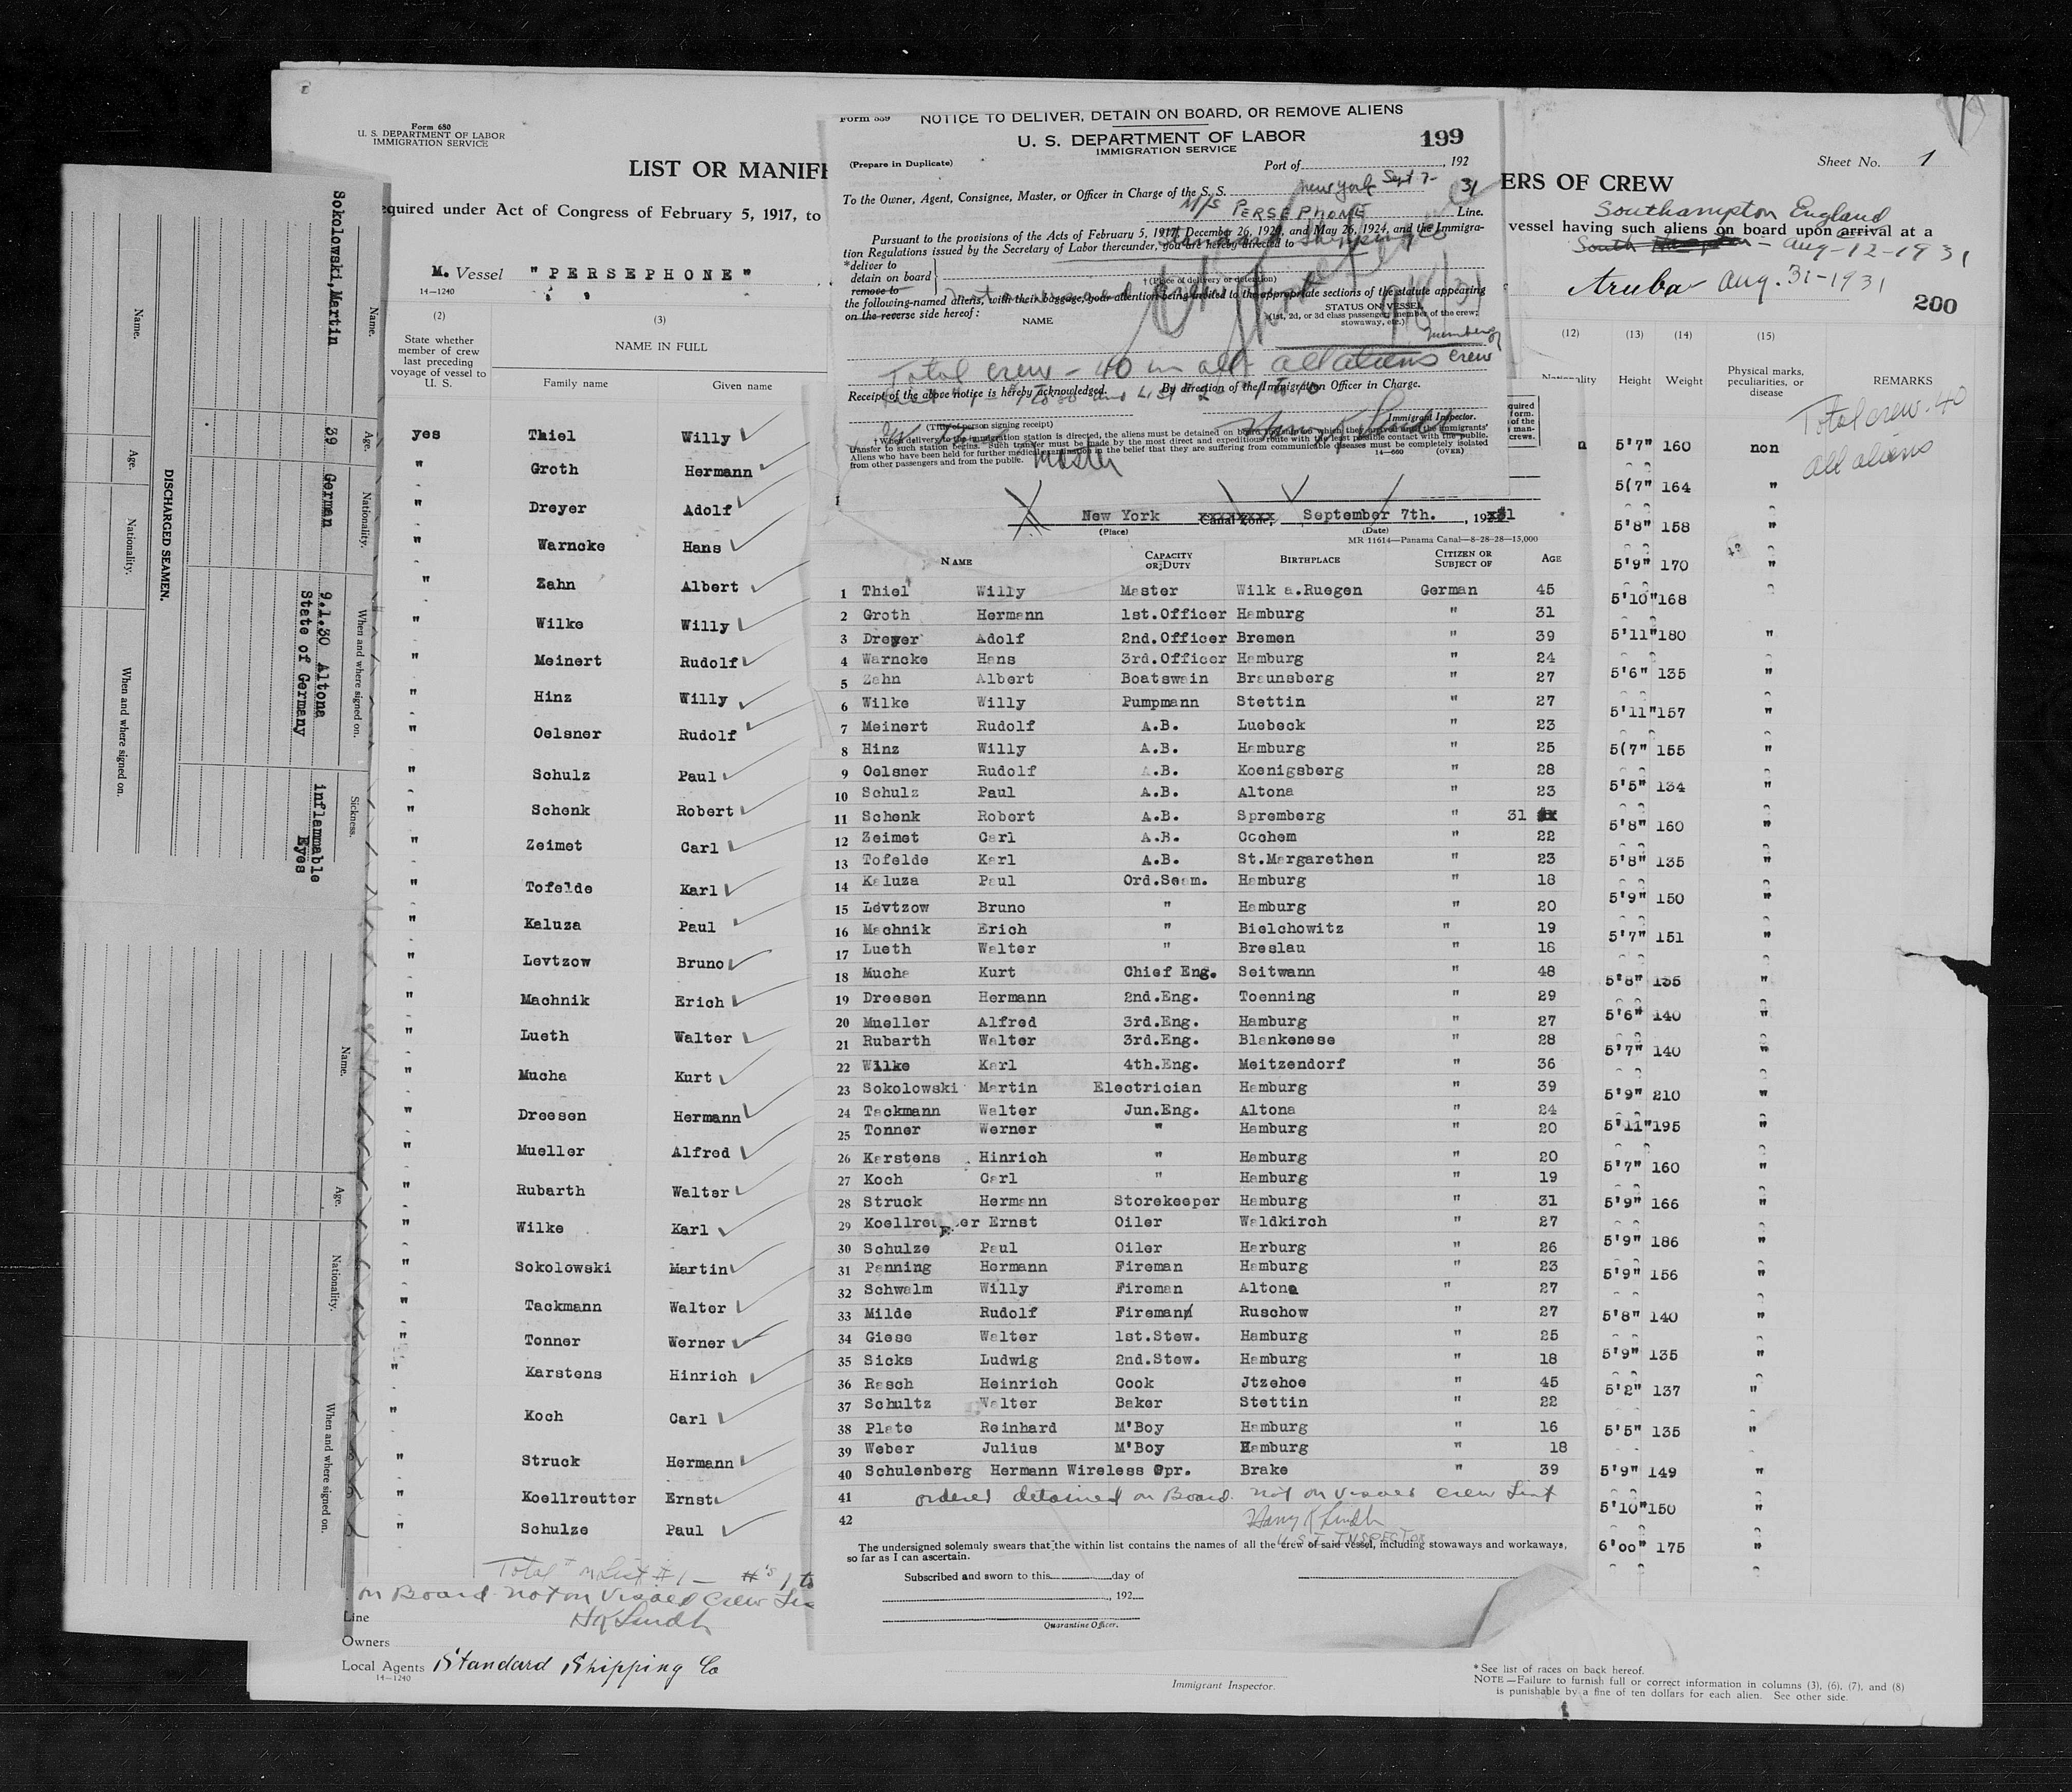 Form 680
U. S. DEPARTMENT OF LABOR
IMMIGRATION SERVICE
LIST OR MANIF
equired under Act of Congress of February 5, 1917, to
M. Vessel "PERSEPHONE"
14—1240
(2)
State whether member of crew last preceding voyage of vessel to U. S.
(3)
NAME IN FULL
Family name Given name
yes Thiel Willy
" Groth Hermann
" Dreyer Adolf
" Warncke Hans
" Zahn Albert
" Wilke Willy
" Meinert Rudolf
" Hinz Willy
" Oelsner Rudolf
" Schulz Paul
" Schenk Robert
" Zeimet Carl
" Tofelde Karl
" Kaluza Paul
" Levtzow Bruno
" Machnik Erich
" Lueth Walter
" Mucha Kurt
" Dreesen Hermann
" Mueller Alfred
" Rubarth Walter
" Wilke Karl
" Sokolowski Martin
" Tackmann Walter
" Tonner Werner
" Karstens Hinrich
" Koch Carl
" Struck Hermann
" Koellreutter Ernst
" Schulze Paul
Total on List #1 — #'s 1 to
on Board not on Visaed Crew Lis
HKLindh
Line
Owners
Local Agents Standard Shipping Co
14—1240
Immigrant Inspector.
DISCHARGED SEAMEN.
Name. Age. Nationality. When and where signed on. Sickness.
Sokolowski, Martin 39 German 9.1.30 Altona inflammable
State of Germany Eyes
Name. Age. Nationality. When and where signed on.
Name. Age. Nationality. When and where signed on.
Form 559 NOTICE TO DELIVER, DETAIN ON BOARD, OR REMOVE ALIENS
U. S. DEPARTMENT OF LABOR
IMMIGRATION SERVICE
199
(Prepare in Duplicate)
Port of , 192
New York Sept 7- 31
To the Owner, Agent, Consignee, Master, or Officer in Charge of the S. S.
M/S PERSEPHONE Line.
Pursuant to the provisions of the Acts of February 5, 1917, December 26, 1920, and May 26, 1924, and the Immigra-
Standard Shipping Co
tion Regulations issued by the Secretary of Labor thereunder, you are hereby directed to
*deliver to
detain on board
remove to
†(Place of delivery or detention)
the following-named aliens, with their baggage, your attention being invited to the appropriate sections of the statute appearing
on the reverse side hereof:
NAME
STATUS ON VESSEL
(1st, 2d, or 3d class passenger, member of the crew, stowaway, etc.)
member of
Total crew - 40 in all all aliens crew
Receipt of the above notice is hereby acknowledged. By direction of the Immigration Officer in Charge.
(Title of person signing receipt) Immigrant Inspector.
Master
†When delivery to the immigration station is directed, the aliens must be detained on board
transfer to such station begins. Such transfer must be made by the most direct and expeditious route with the least possible contact with the public.
Aliens who have been held for further medical examination in the belief that they are suffering from communicable diseases must be completely isolated
from other passengers and from the public. 14—660 (OVER)
New York Canal Zone, September 7th. , 1931
(Place) (Date)
MR 11614—Panama Canal—8-28-28—15,000
NAME CAPACITY OR DUTY BIRTHPLACE CITIZEN OR SUBJECT OF AGE
1 Thiel Willy Master Wilk a.Ruegen German 45
2 Groth Hermann 1st.Officer Hamburg " 31
3 Dreyer Adolf 2nd.Officer Bremen " 39
4 Warncke Hans 3rd.Officer Hamburg " 24
5 Zahn Albert Boatswain Braunsberg " 27
6 Wilke Willy Pumpmann Stettin " 27
7 Meinert Rudolf A.B. Luebeck " 23
8 Hinz Willy A.B. Hamburg " 25
9 Oelsner Rudolf A.B. Koenigsberg " 28
10 Schulz Paul A.B. Altona " 23
11 Schenk Robert A.B. Spremberg " 31
12 Zeimet Carl A.B. Cochem " 22
13 Tofelde Karl A.B. St.Margarethen " 23
14 Kaluza Paul Ord.Seam. Hamburg " 18
15 Levtzow Bruno " Hamburg " 20
16 Machnik Erich " Bielchowitz " 19
17 Lueth Walter " Breslau " 18
18 Mucha Kurt Chief Eng. Seitwann " 48
19 Dreesen Hermann 2nd.Eng. Toenning " 29
20 Mueller Alfred 3rd.Eng. Hamburg " 27
21 Rubarth Walter 3rd.Eng. Blankenese " 28
22 Wilke Karl 4th.Eng. Meitzendorf " 36
23 Sokolowski Martin Electrician Hamburg " 39
24 Tackmann Walter Jun.Eng. Altona " 24
25 Tonner Werner " Hamburg " 20
26 Karstens Hinrich " Hamburg " 20
27 Koch Carl " Hamburg " 19
28 Struck Hermann Storekeeper Hamburg " 31
29 Koellreutter Ernst Oiler Waldkirch " 27
30 Schulze Paul Oiler Harburg " 26
31 Penning Hermann Fireman Hamburg " 23
32 Schwalm Willy Fireman Altona " 27
33 Milde Rudolf Fireman Ruschow " 27
34 Giese Walter 1st.Stew. Hamburg " 25
35 Sicks Ludwig 2nd.Stew. Hamburg " 18
36 Rasch Heinrich Cook Jtzehoe " 45
37 Schultz Walter Baker Stettin " 22
38 Plate Reinhard M'Boy Hamburg " 16
39 Weber Julius M'Boy Hamburg " 18
40 Schulenberg Hermann Wireless Opr. Brake " 39
41 ordered detained on Board. not on Visaed Crew List
42 Harry K Lindh
U.S.I. INSPECTOR
The undersigned solemnly swears that the within list contains the names of all the crew of said vessel, including stowaways and workaways,
so far as I can ascertain.
Subscribed and sworn to this day of
, 192
Quarantine Officer.
Sheet No. 1
ERS OF CREW
Southampton England
vessel having such aliens on board upon arrival at a
Aug-12-1931
Aruba Aug. 31-1931
200
(12) (13) (14) (15)
Nationality Height Weight Physical marks, peculiarities, or disease REMARKS
Total crew. 40
all aliens
5'7" 160 non
5(7" 164 "
5'8" 158 "
5'9" 170 "
5'10" 168
5'11" 180 "
5'6" 135 "
5'11" 157 "
5(7" 155 "
5'5" 134 "
5'8" 160 "
5'8" 135 "
5'9" 150 "
5'7" 151 "
5'8" 135 "
5'6" 140 "
5'7" 140 "
5'9" 210 "
5'11" 195 "
5'7" 160 "
5'9" 166 "
5'9" 186 "
5'9" 156 "
5'8" 140 "
5'9" 135 "
5'2" 137 "
5'5" 135 "
5'9" 149 "
5'10" 150 "
6'00" 175 "
*See list of races on back hereof.
NOTE.—Failure to furnish full or correct information in columns (3), (6), (7), and (8)
is punishable by a fine of ten dollars for each alien. See other side.